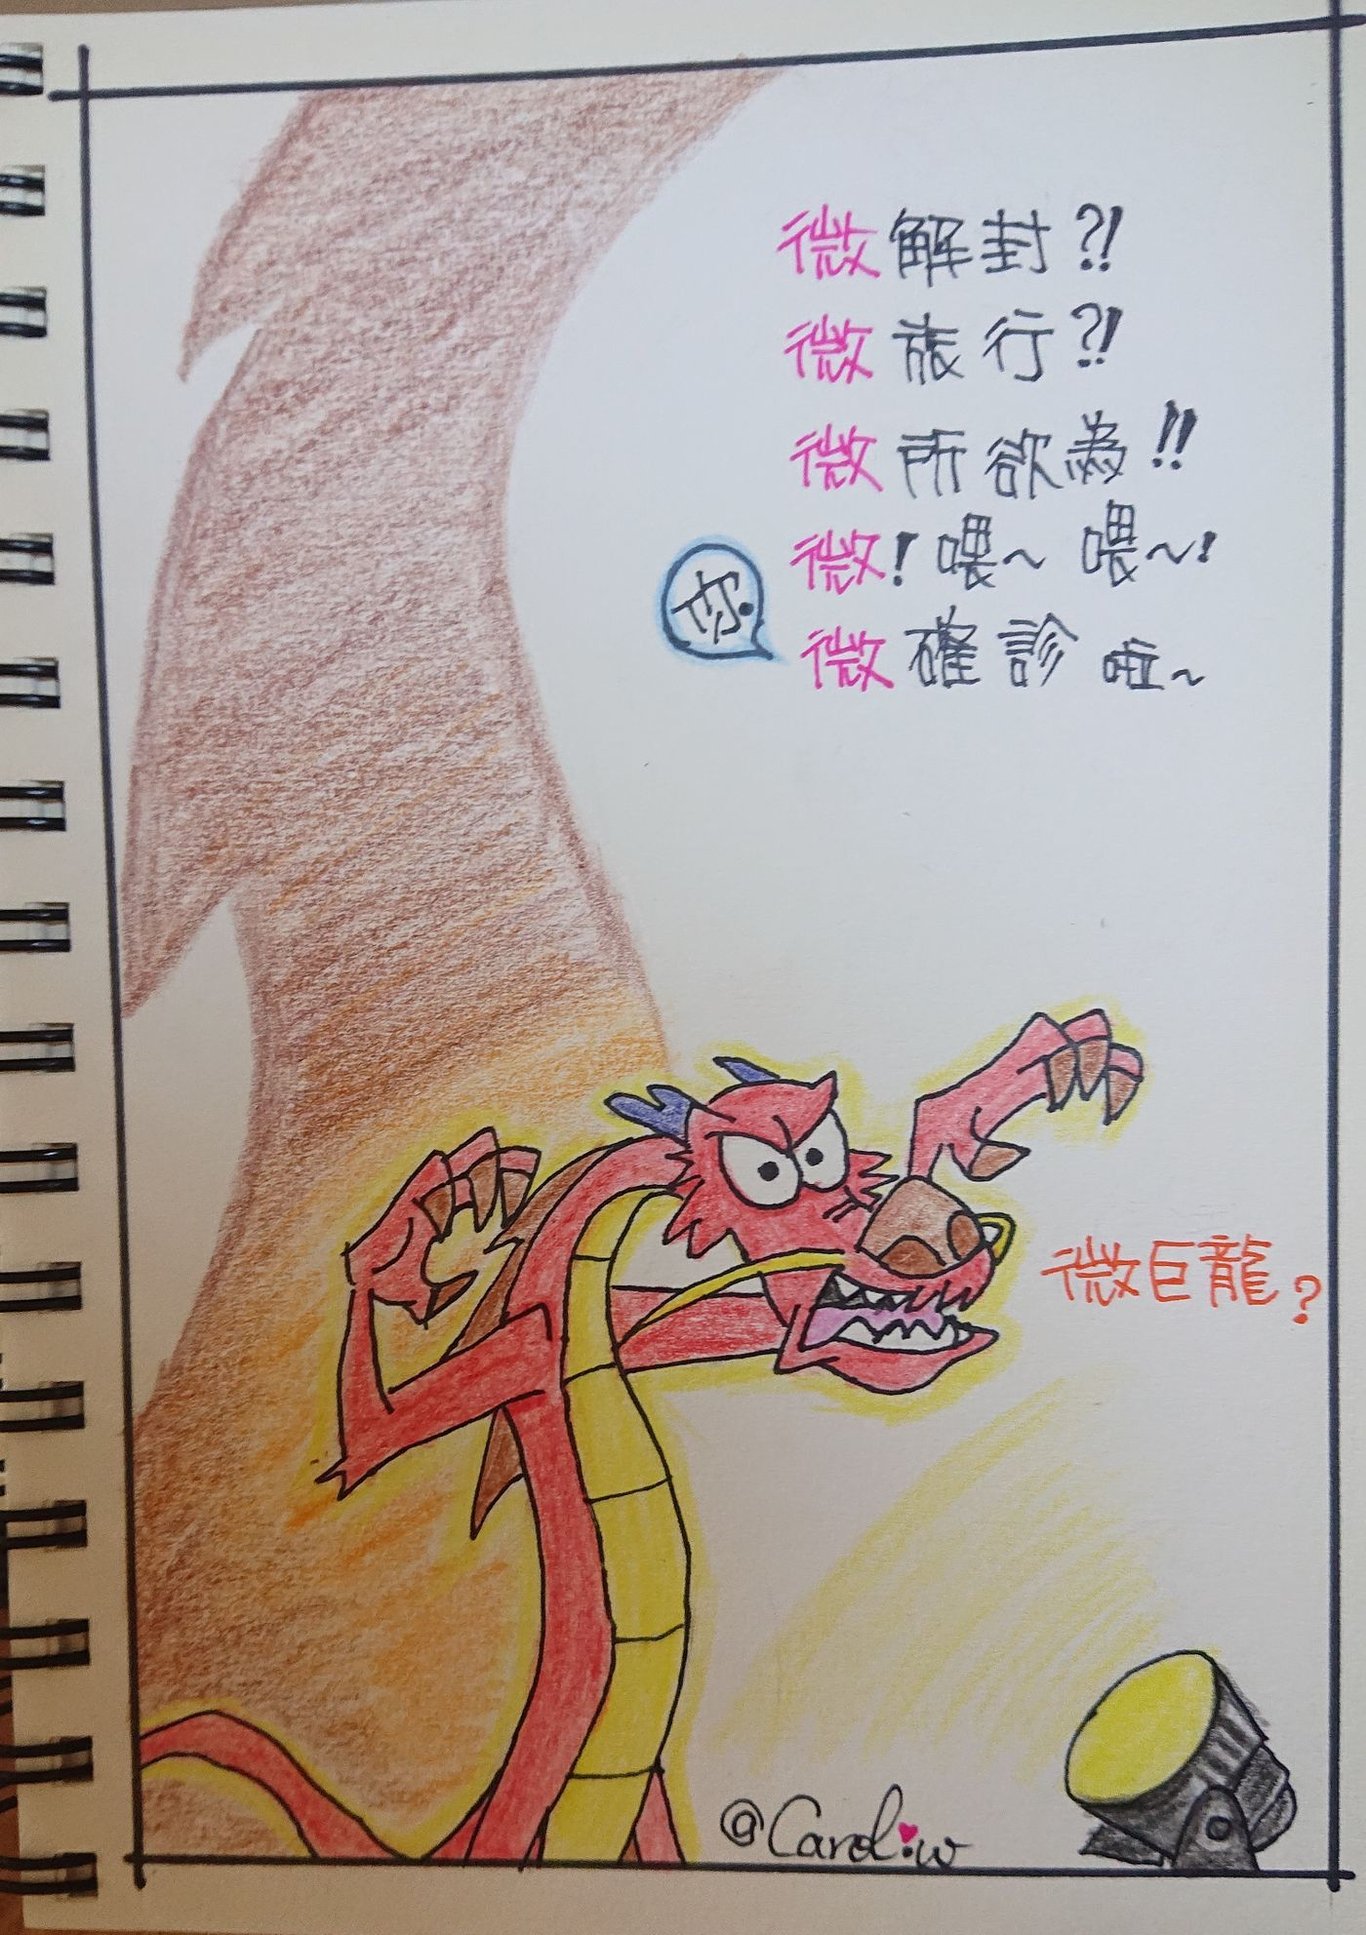 微解封?!
微旅行?!
微所欲為!!
微!喂~喂~!
你
微確診啦~
微巨龍?
@Carol.w